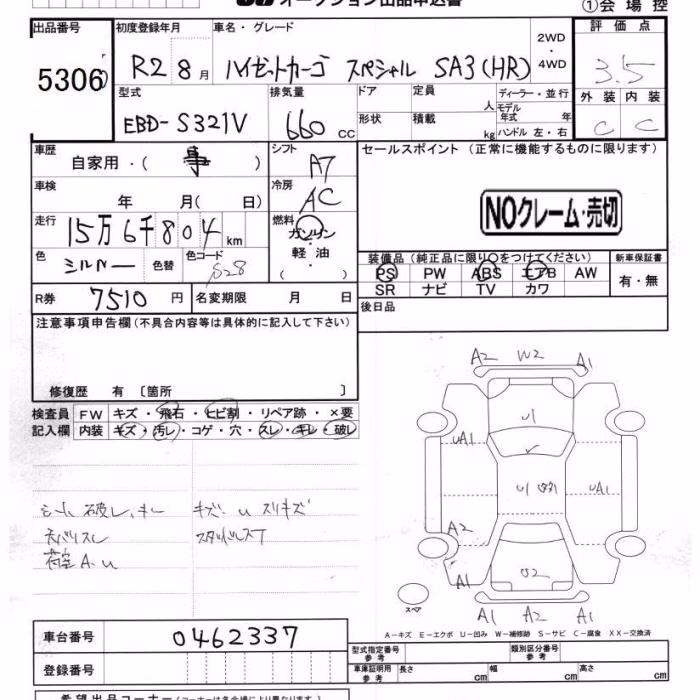 オークション出品申込書
①会場控
出品番号 5306
初度登録年月 R2 8月
車名・グレード ハイゼットカーゴ スペシャル SA3(HR)
2WD・4WD
評価点 3.5
型式 EBD-S321V
排気量 660 cc
ドア
形状
定員 人
積載 kg
ディーラー・並行
モデル年式 年
ハンドル 左・右
外装 C
内装 C
車歴 自家用・(事)
シフト A7
セールスポイント (正常に機能するものに限ります)
車検 年 月(日)
冷房 AC
NOクレーム・売切
走行 15万6千804km
燃料 ガソリン・軽油・( )
色 シルバー 色替 色コード S28
装備品(純正品に限り○をつけてください)
PS PW ABS エアB AW
SR ナビ TV カワ
新車保証書 有・無
R券 7510円 名変期限 月 日
後日品
注意事項申告欄(不具合内容等は具体的に記入して下さい)
修復歴 有 〔箇所 〕
検査員記入欄
FW キズ・飛石・ヒビ割・リペア跡・×要
内装 キズ・汚レ・コゲ・穴・スレ・キレ・破レ
A2 W2 A1
U1
UA1
U1
UA1
シート破レ、キレ キズ、U スリキズ
荷室A、U
A2
A1
U2
スペア
A1 A2 A1
A-キズ E-エクボ U-凹み W-補修跡 S-サビ C-腐食 XX-交換済
車台番号 0462337
登録番号
型式指定番号 参考
類別区分番号 参考
車庫証明用 参考 長さ cm 幅 cm 高さ cm
希望出品コーナー